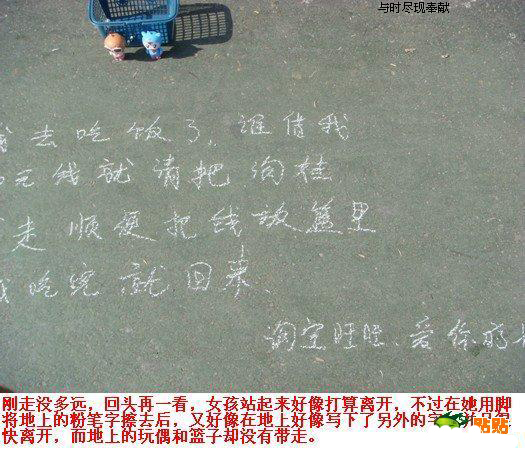 与时尽现奉献
我去吃饭了,谁借我
元钱就请把
走顺便把钱放篮里
我吃完就回来
淘宝旺旺、爱你的
刚走没多远，回头再一看，女孩站起来好像打算离开，不过在她用脚
将地上的粉笔字擦去后，又好像在地上好像写下了另外的字
快离开，而地上的玩偶和篮子却没有带走。
贴贴